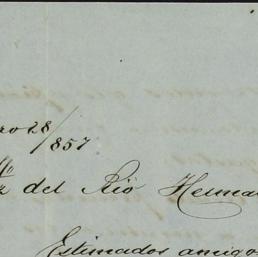 ro 28/857
del Rio Herma
Estimados amigo